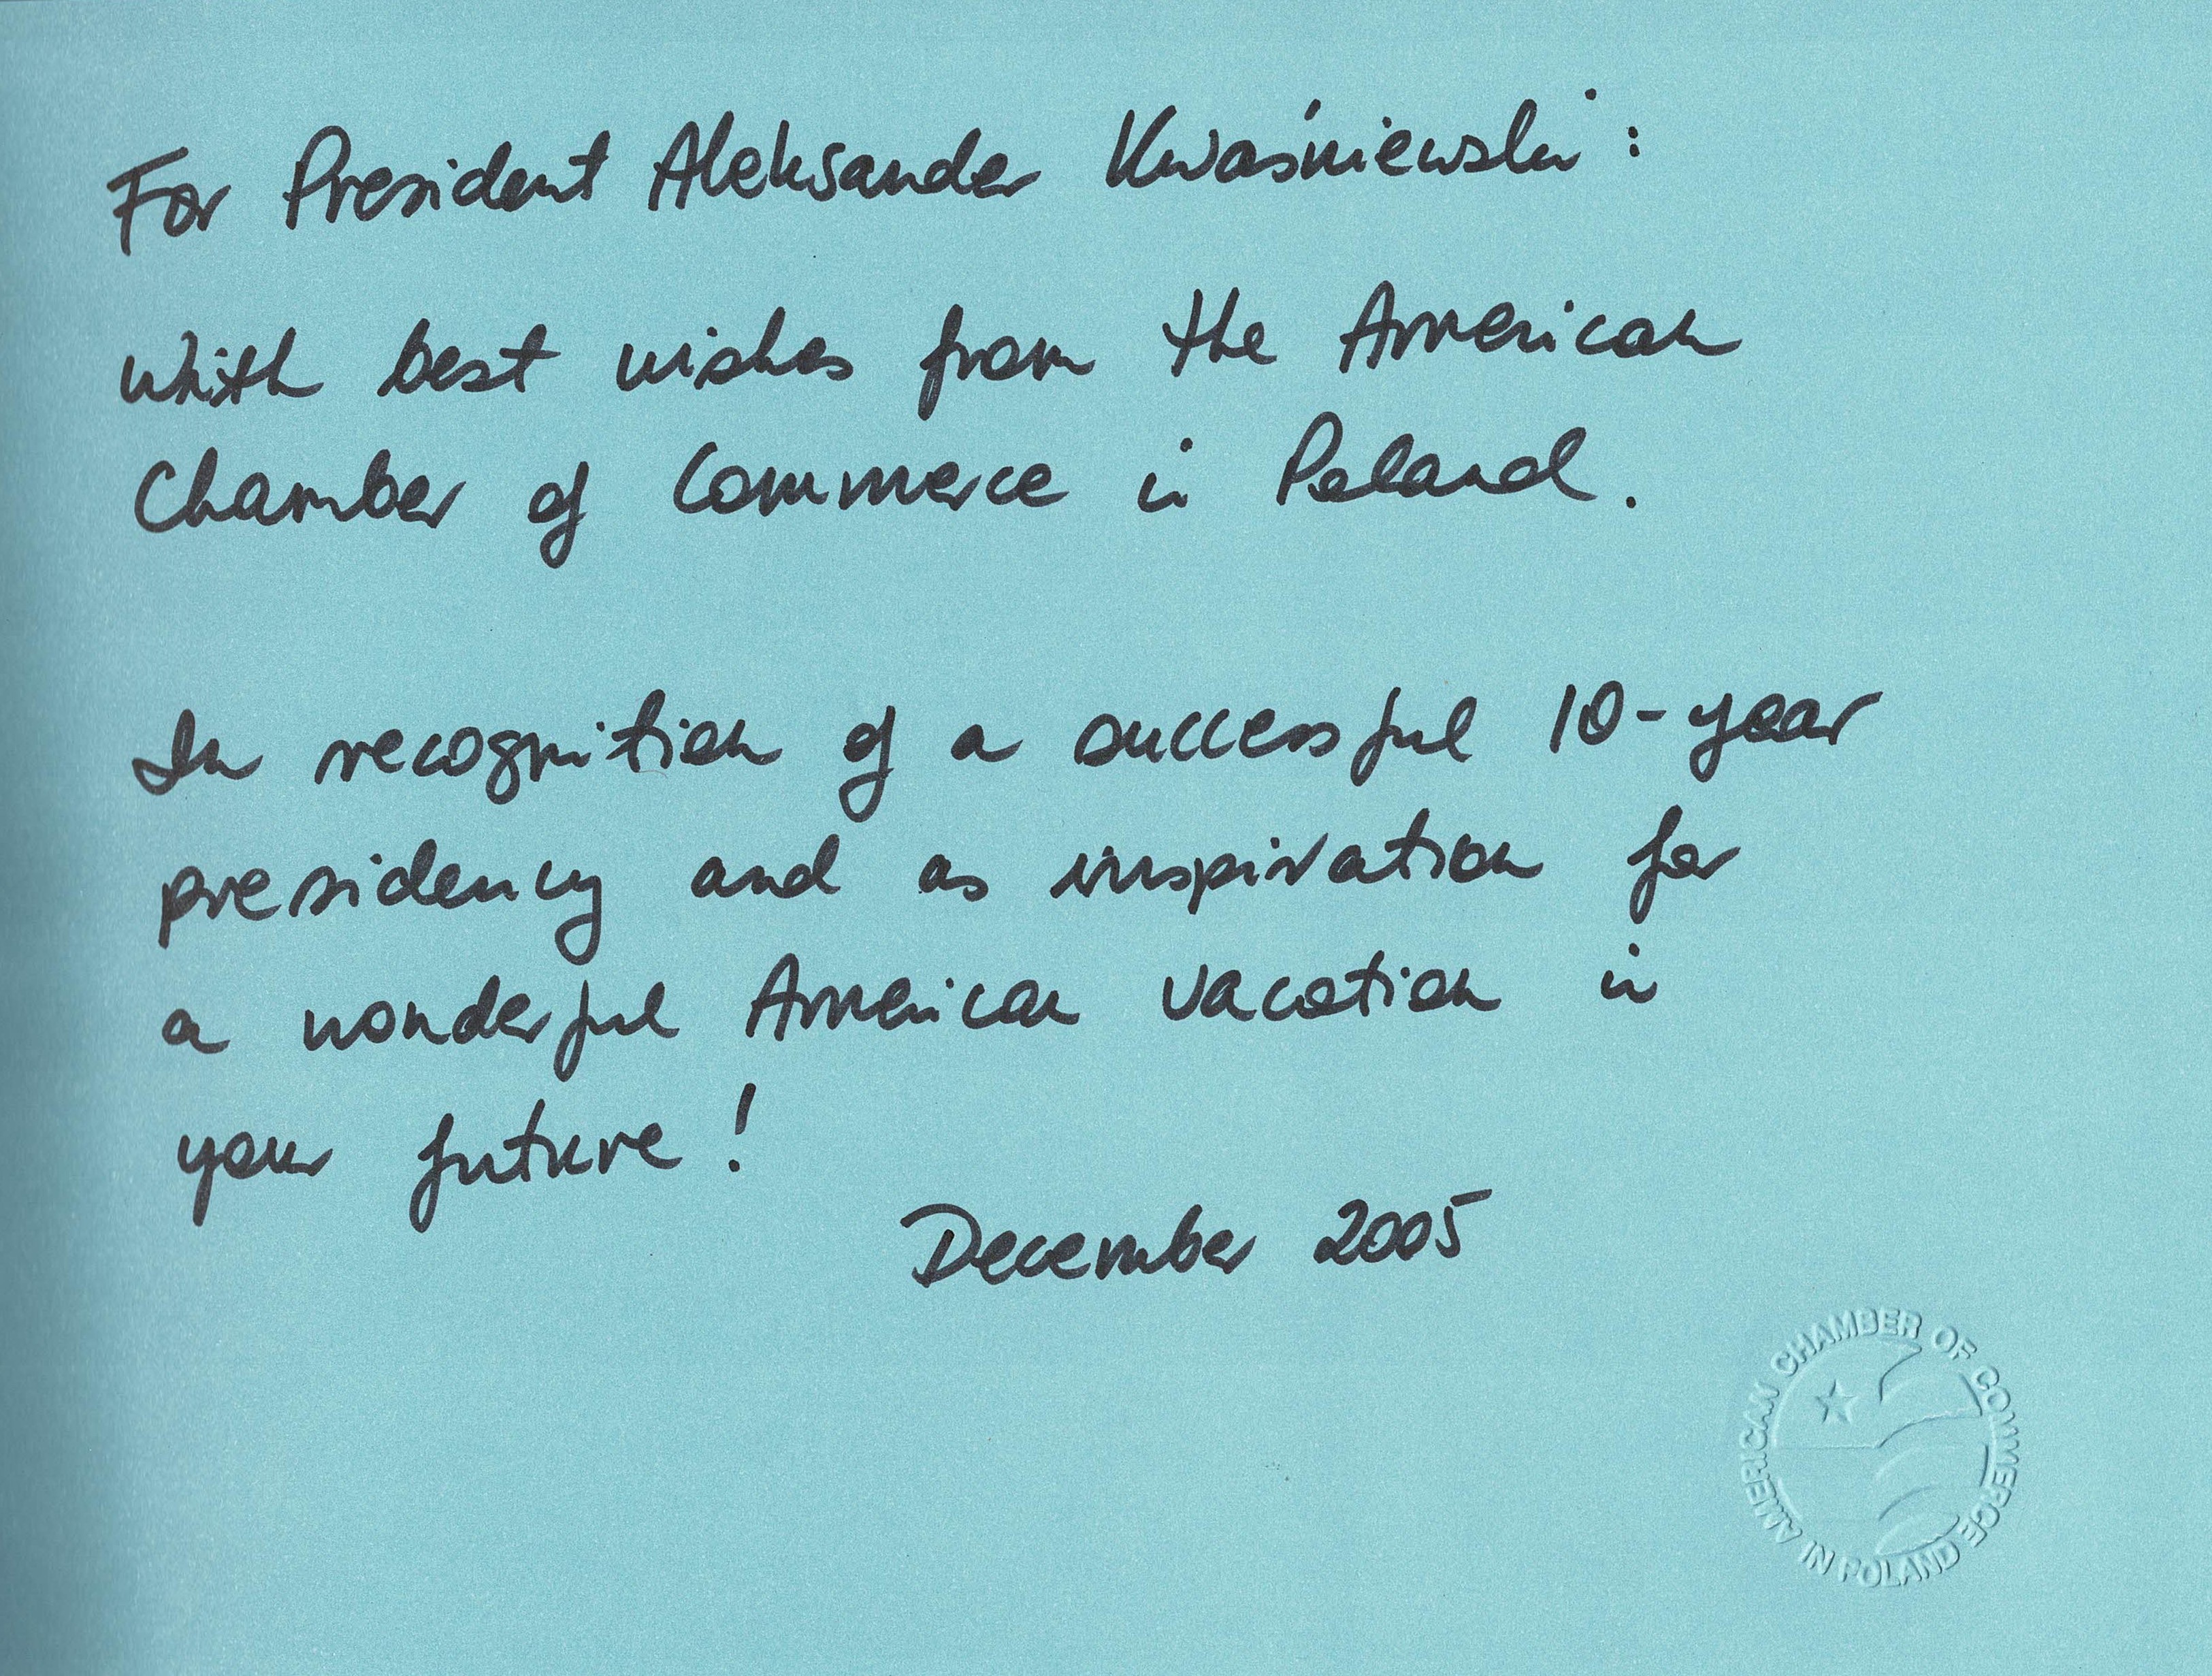 For President Aleksander Kwaśniewski:
Whith best wishes from the American
Chamber of Commerce in Poland.
In recognition of a successful 10-year
presidency and as inspiration for
a wonderful American vacation in
your future!
December 2005
AMERICAN CHAMBER OF COMMERCE
IN POLAND